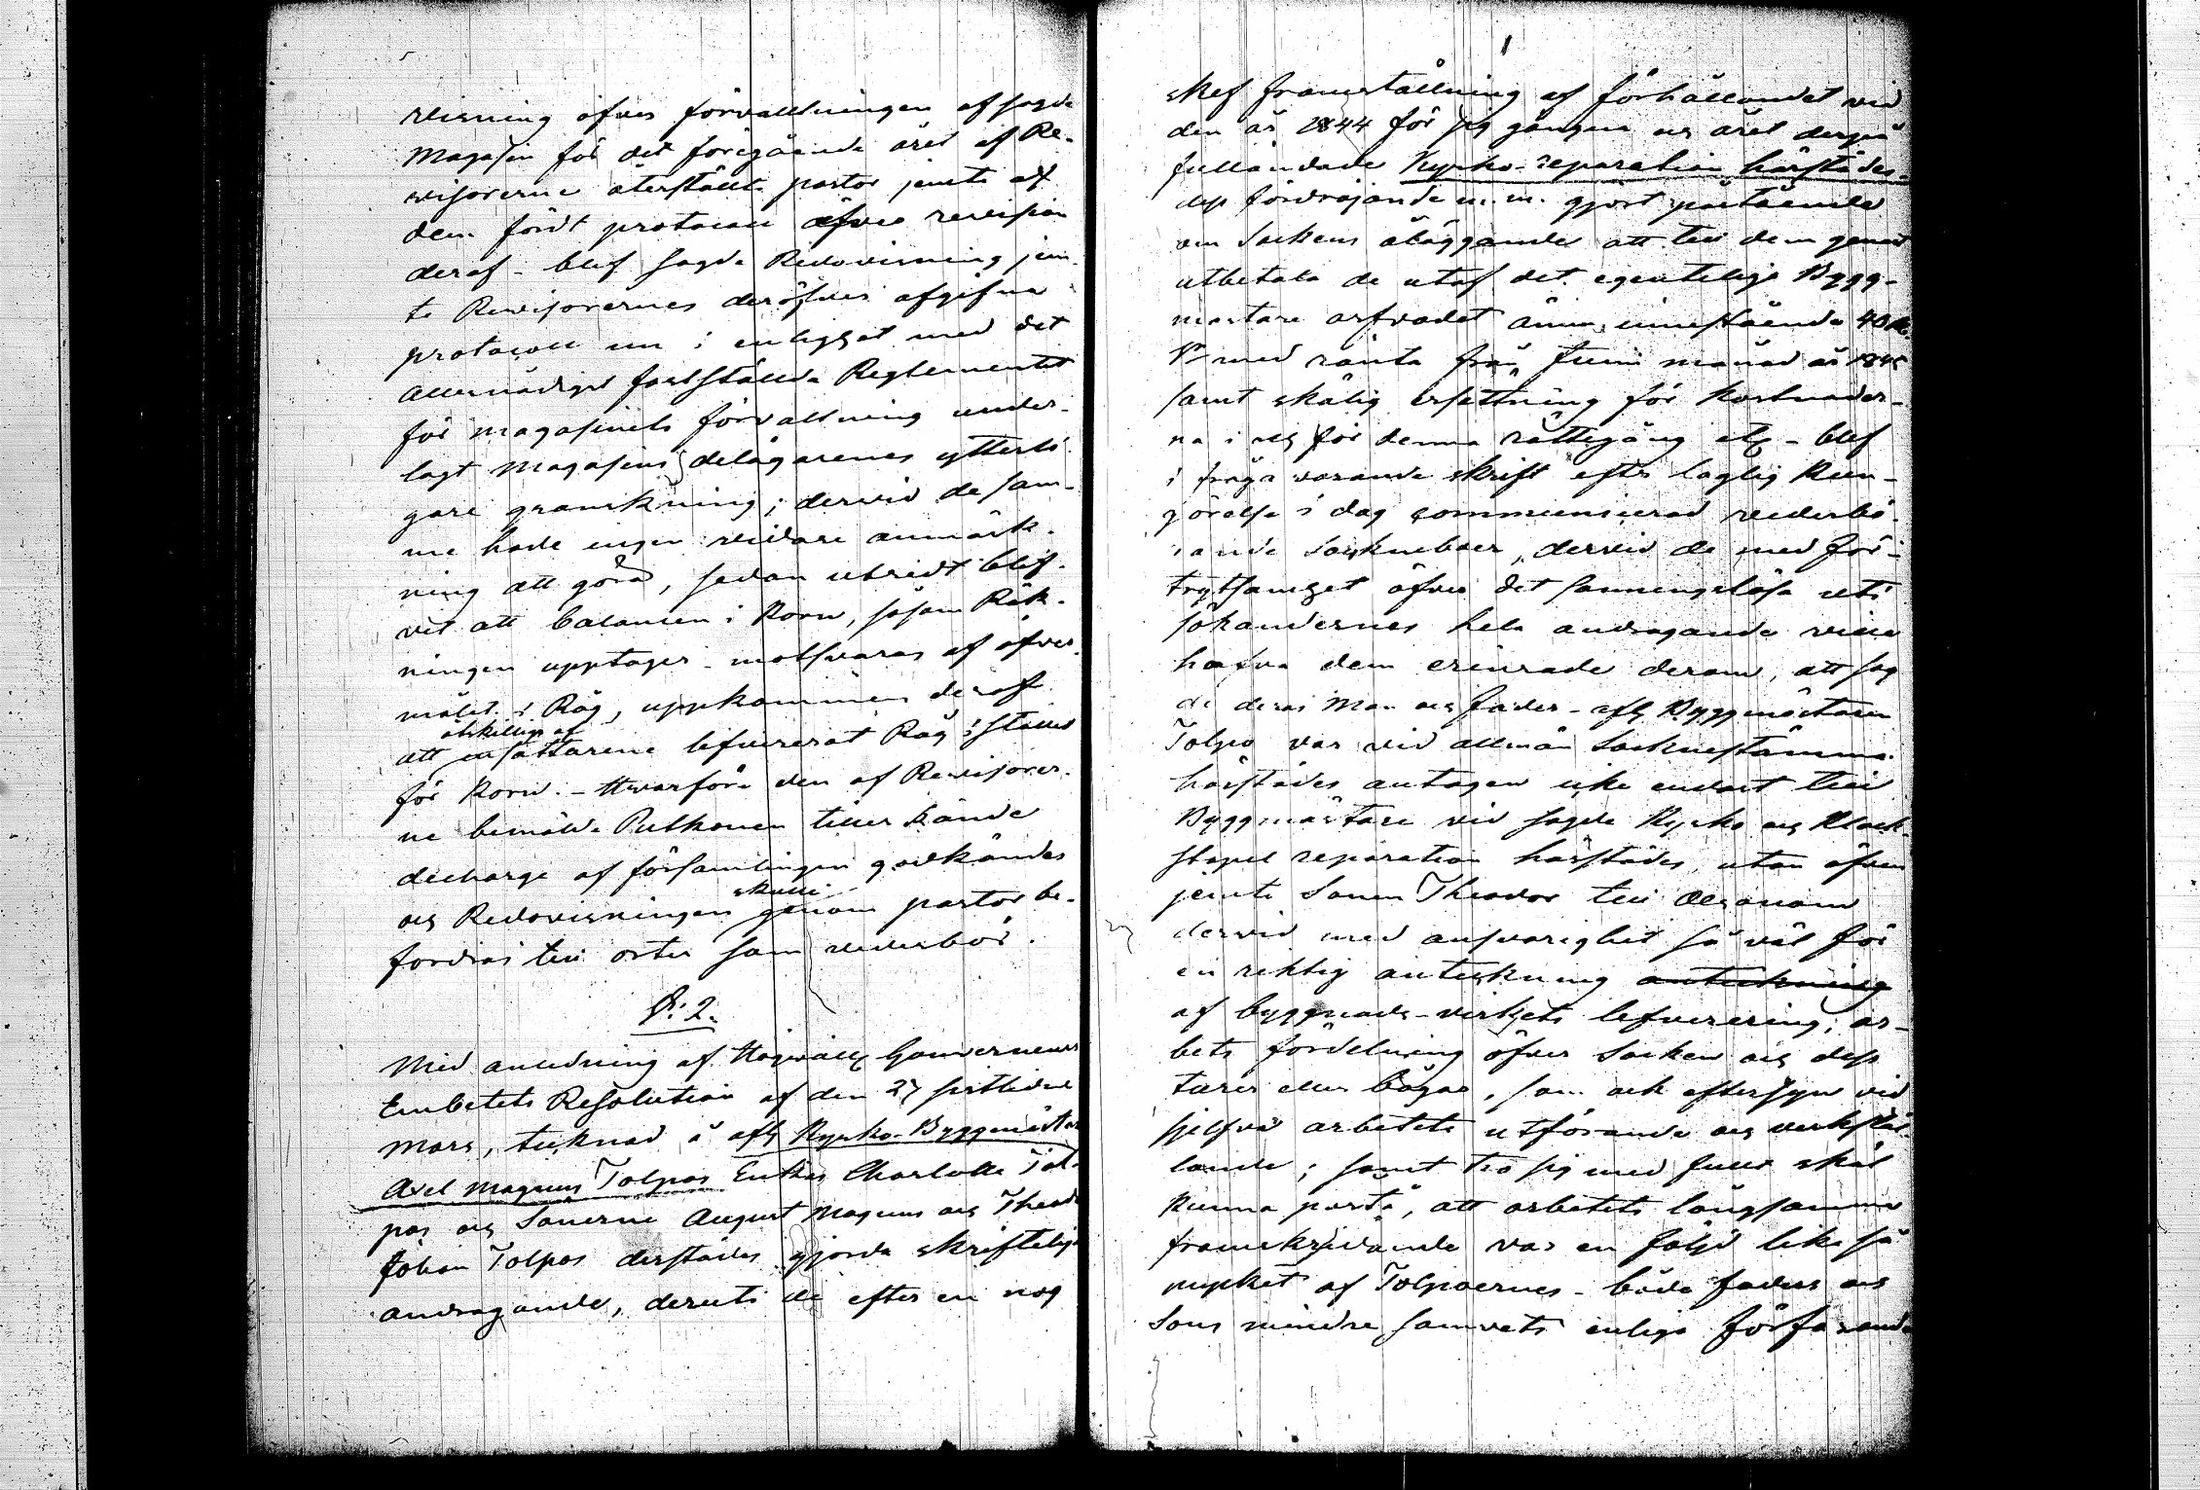 visning öfver förvaltningen af sagde
Magasin för det föregående året af Re-
visorerne återstäldt pastor jemte af
dem fördt protocoll öfver revision
deraf - blef sagde Redovisning jem-
te Revisorernes deröfver afgifna
protocoll nu i enlighet med det
Allernådigst fastställda Reglementet
för magasinets förvaltning under-
lagt Magasins delägarenes ytterli-
gare granskning; dervid de sam-
me hade ingen vidare anmärk-
ning att göra, sedan utredt blif-
vit att balancen i Korn, såsom Räk-
ningen upptager motsvaras af öfver-
målet i Råg, uppkommen deraf
åtskillige af
att insättarene lefvererat Råg i stället
för Korn. - Hvarföre den af Revisorer-
ne bemälde Pulkonen tillerkände
decharge af församlingen godkändes
skulle
och Redovisningen genom pastor be-
fordras till orter som vederbör.
§. 2.
Med anledning af Högvälb Gouverneurs
Embetets Resolution af den 27 sistledne
Mars, teknad å afl Kyrko-Byggmästar
Axel Magnus Tolpos Enkas Charlotta Tol-
pos och Sönerne August Magnus och Theodor
Johan Tolpos derstädes gjorda skrifteliga
andragande, deruti de efter en nog
skef framställning af förhållandet vid
den år 1844 för sig gångna och året derpå
fulländade Kyrko-reparation härstädes
dess fördröjande m.m. gjort påstående
om Sockens åläggande att till dem genast
utbetala de utaf det egentelige Bygg-
mästare arfvodet ännu innestående 40 R.
Sr med ränta från Junii månad år 1845
samt skälig ersättning för kostnader-
na i och för denna rättegång etc - blef
i fråga varande skrift efter laglig kun-
görelse i dag communicerad vederbö-
rande Sockneboer, dervid de med för-
trytsamhet öfver det sanningslösa uti
sökandernes hela andragande ville
hafva dem erinrade derom, att såg
de deras Man och fader - afl Byggmästaren
Tolpo var vid allmän Socknestämma
härstädes antagen icke endast till
Byggmästare vid sagde Kyrko och Klock-
stapel reparation härstädes, utan äfven
jemte Sonen Theodor till Oeconom
dervid med ansvarighet så väl för
en riktig antekning antekning
af byggnads-virkets lefverering; ar-
bets fördelning öfver Socken och dess
turer eller bågar, som ock eftersyn vid
sjelfva arbetets utförande och verkstäl-
lande; samt tro sig med fullt skäl
kunna påstå, att arbetets långsamma
framskridande var en följd lika så
mycket af Tolpoernes - både faders och
Sons mindre samvets enliga förfarande